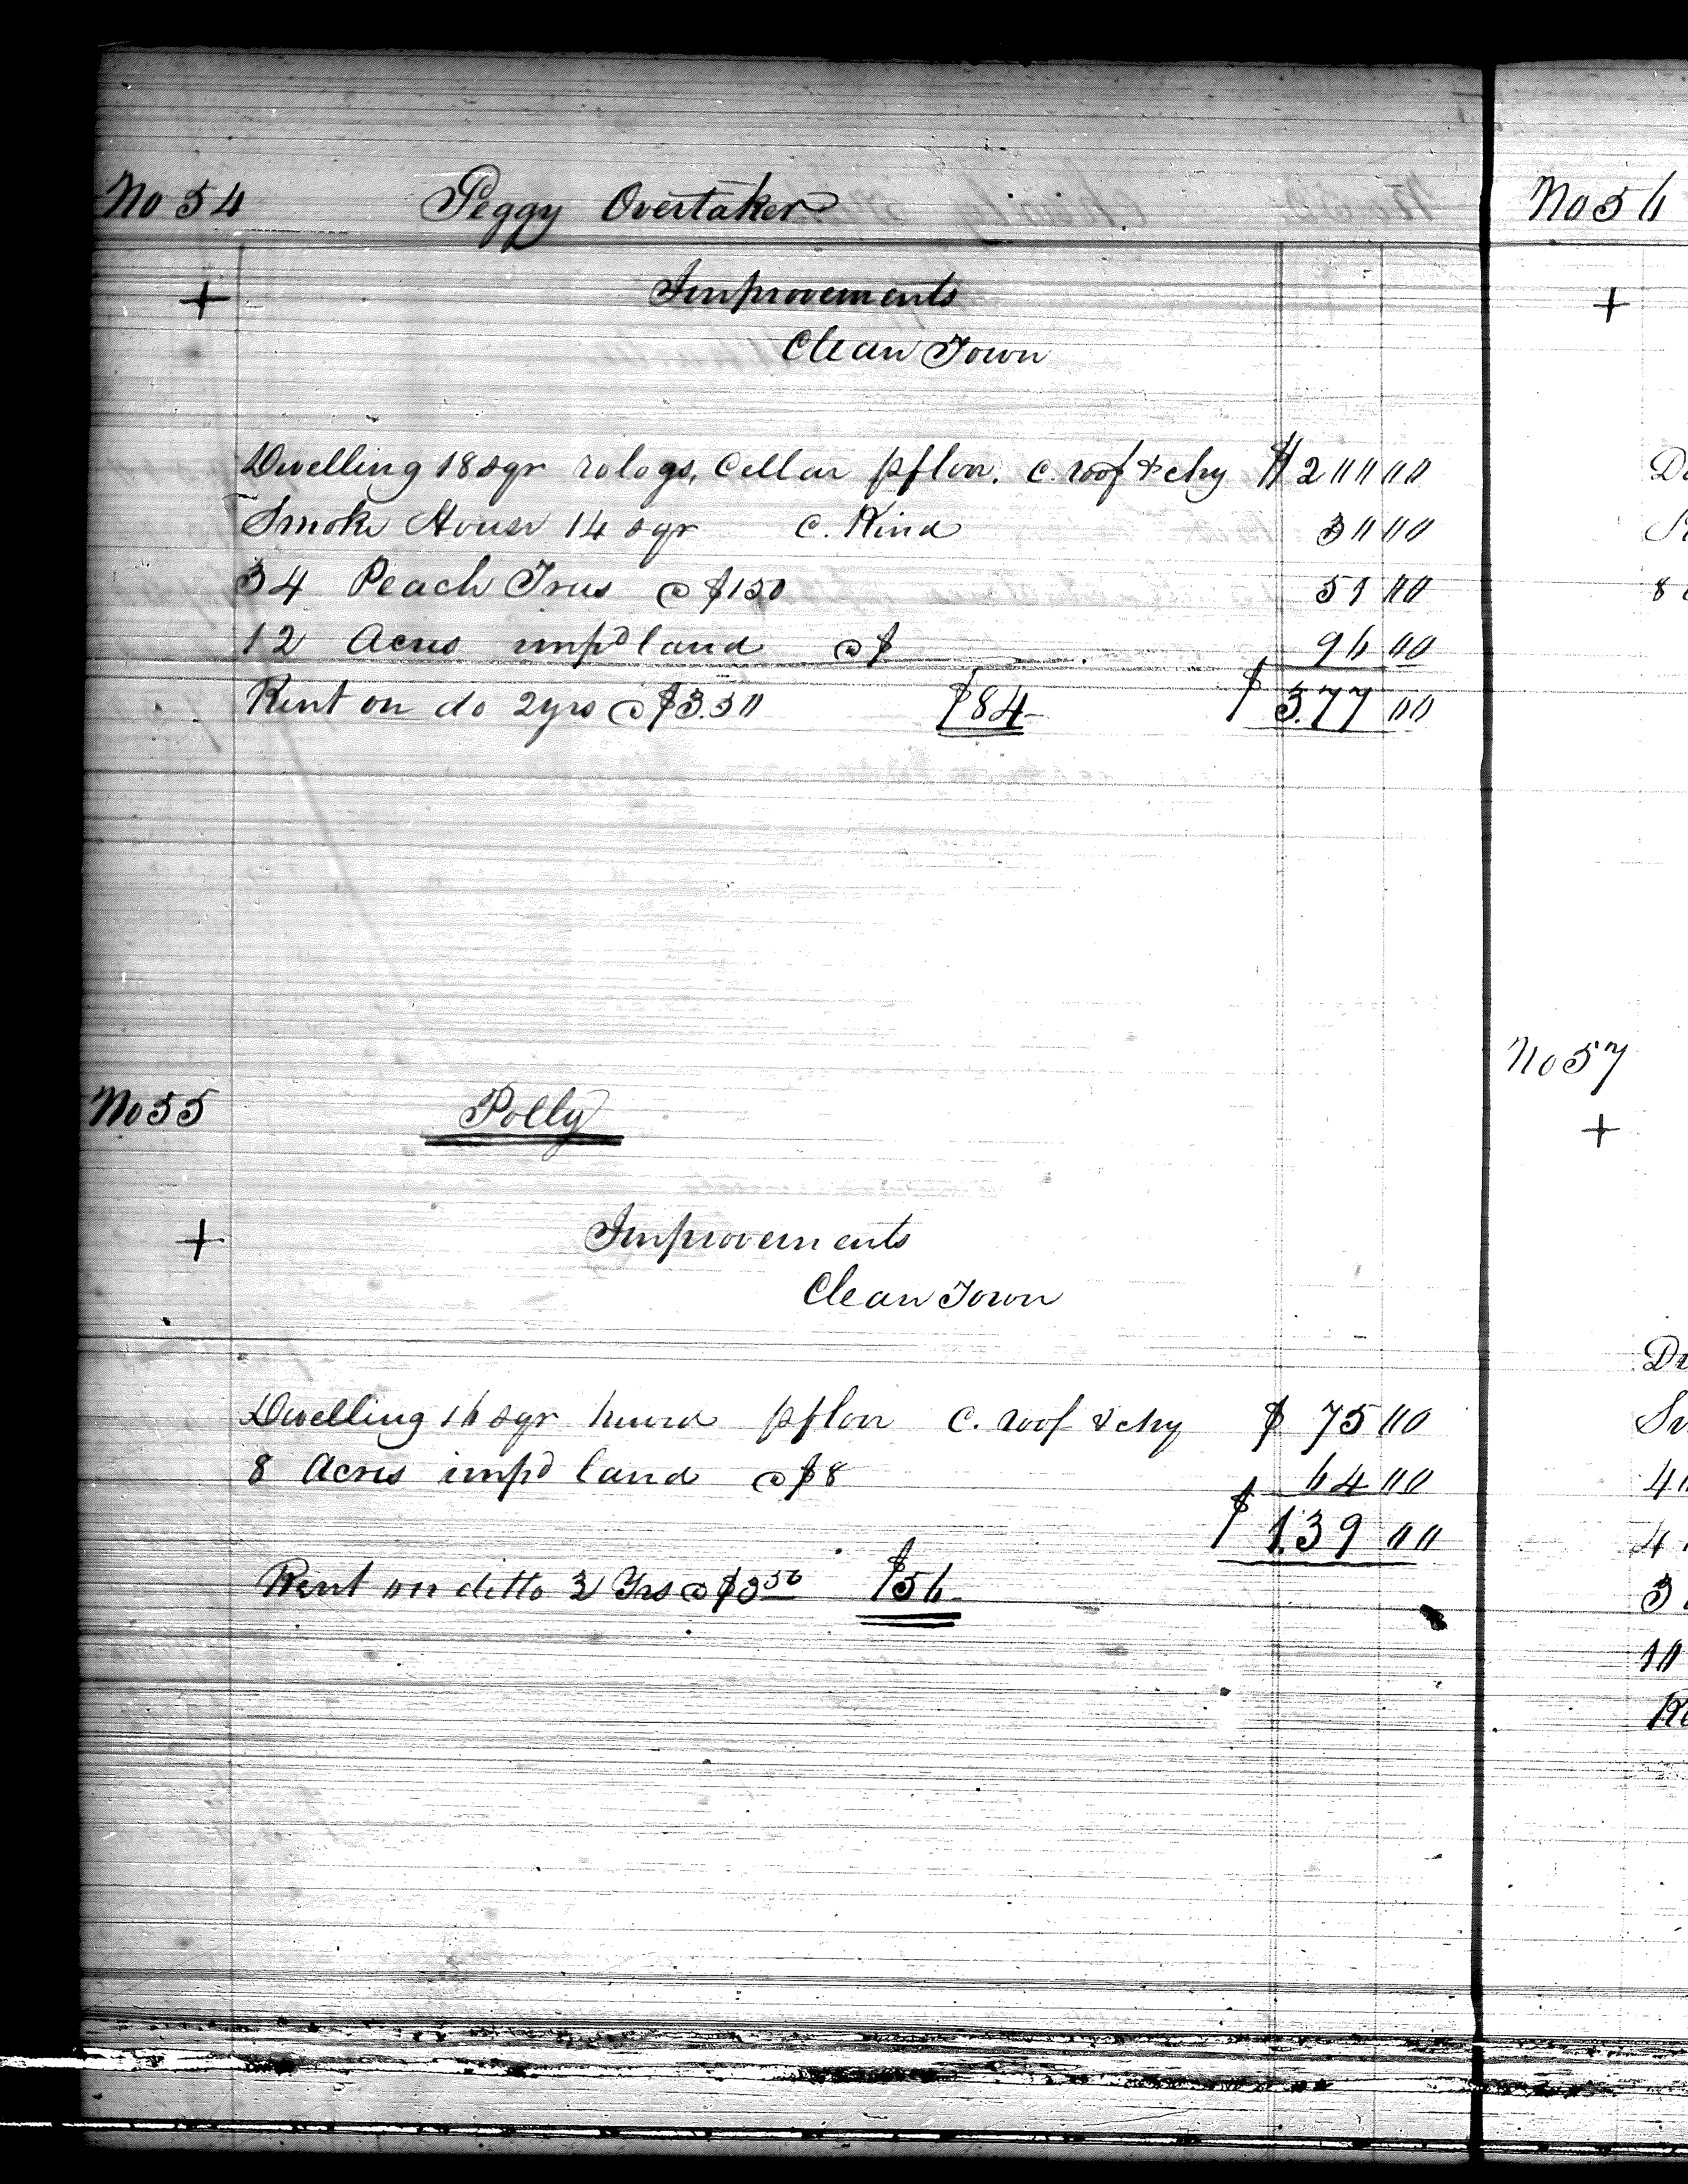 No 54 Peggy Overtaker
+ Improvements
Clean Town
Dwelling 18 sqr ro logs, Cellar pflor. c. roof & chy $200 00
Smoke House 14 sqr C. Kind 30 00
34 Peach Trees @ $150 51 00
12 Acres impd land @ $ 96 00
Rent on do 2 yrs @ $3.50 $84 $377 00
No 55 Polly
+ Improvements
Clean Town
Dwelling 16 sqr hewed pflor C. roof & chy $75 00
8 Acres impd land @ $8 64 00
$139 00
Rent on ditto 2 Yrs @ $3 50 $56
No 56
+
8
No 57
+
4
3
10